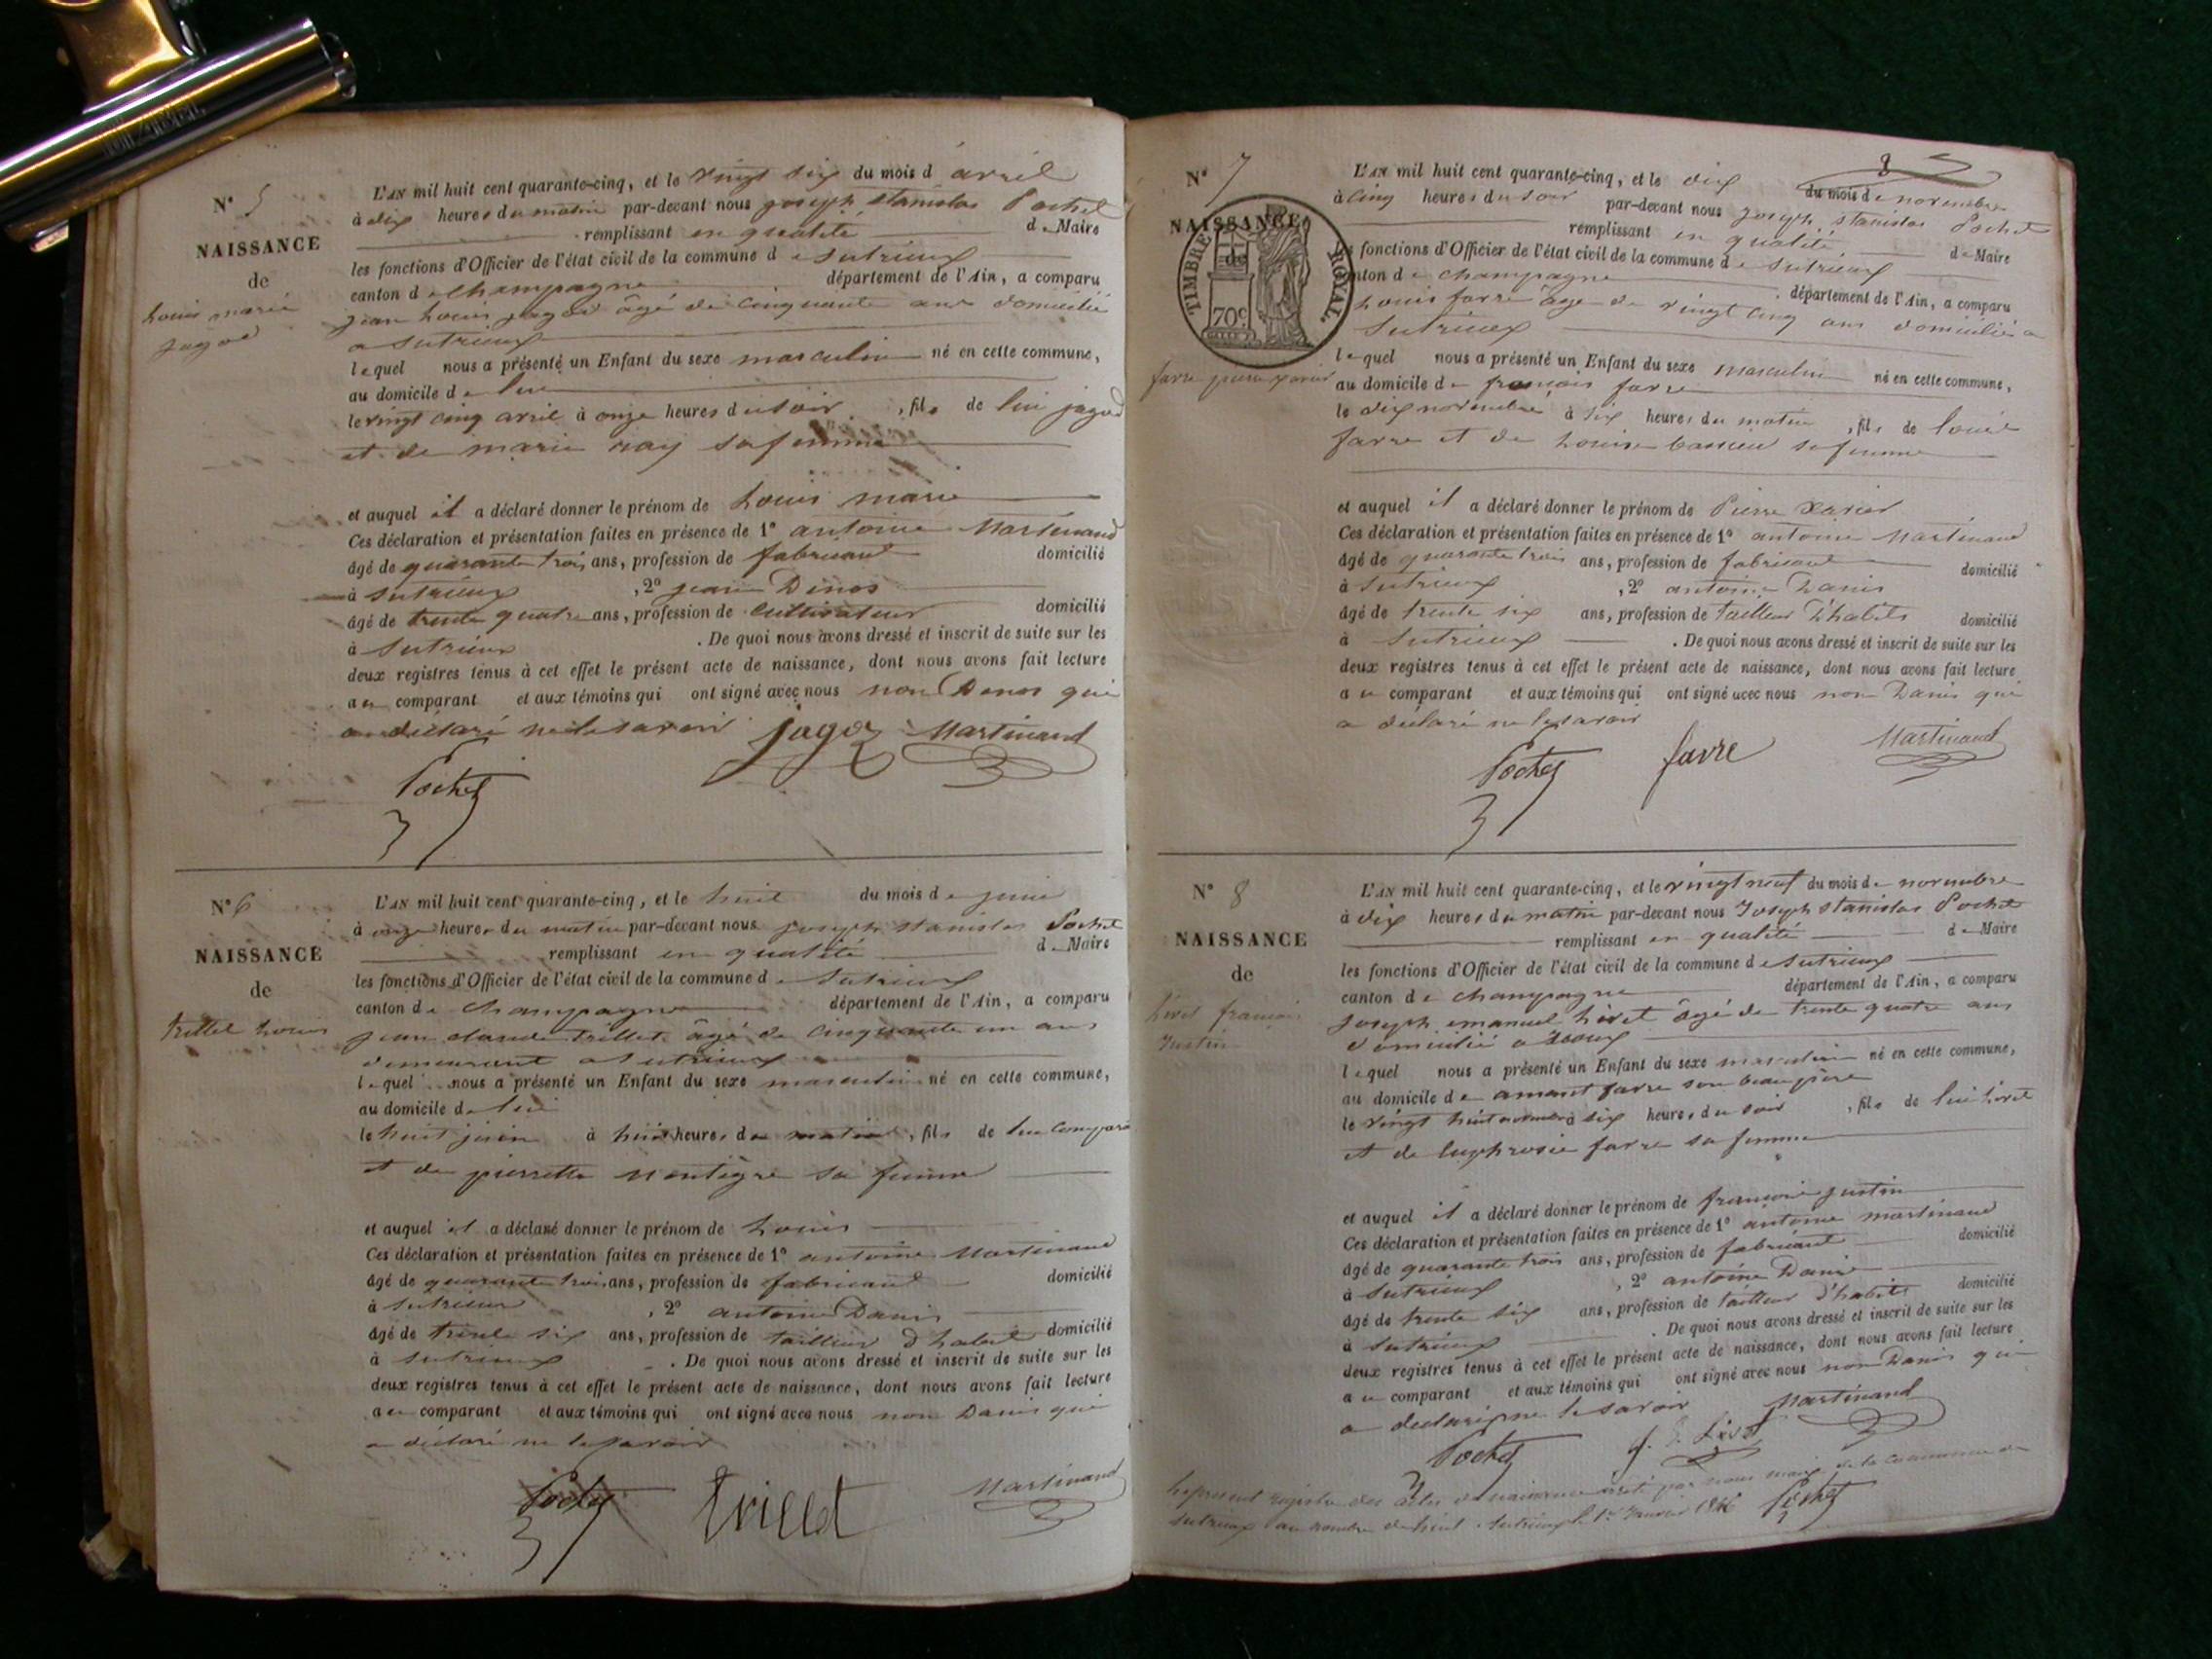 N° 5
NAISSANCE
de
Louis marie
jagod
L'AN mil huit cent quarante-cinq, et le vingt six du mois d avril
à dix heures du matin par-devant nous joseph stanislas Pochet
remplissant en qualité de Maire
les fonctions d'Officier de l'état civil de la commune de Sutrieux
canton de Champagne département de l'Ain, a comparu
jean Louis jagod âgé de cinquante ans domicilié
a Sutrieux
lequel nous a présenté un Enfant du sexe masculin né en cette commune,
au domicile de lui
le vingt cinq avril à onze heures du soir, fils de lui jagod
et de marie ray sa femme
et auquel il a déclaré donner le prénom de Louis marie
Ces déclaration et présentation faites en présence de 1° antoine Martinand
âgé de quarante trois ans, profession de fabricant domicilié
à Sutrieux, 2° jean Denos
âgé de trente quatre ans, profession de cultivateur domicilié
à Sutrieux. De quoi nous avons dressé et inscrit de suite sur les
deux registres tenus à cet effet le présent acte de naissance, dont nous avons fait lecture
au comparant et aux témoins qui ont signé avec nous non Denos qui
a déclaré ne le savoir jagoz Martinand
Pochet
N° 6
NAISSANCE
de
trillet Louis
L'AN mil huit cent quarante-cinq, et le huit du mois de juin
à onze heures du matin par-devant nous joseph stanislas Pochet
remplissant en qualité de Maire
les fonctions d'Officier de l'état civil de la commune de Sutrieux
canton de Champagne département de l'Ain, a comparu
jean claude trillet âgé de cinquante un ans
demeurant a Sutrieux
lequel nous a présenté un Enfant du sexe masculin né en cette commune,
au domicile de lui
le huit juin à huit heures du matin, fils de lui
et de pierrette sa femme
et auquel il a déclaré donner le prénom de Louis
Ces déclaration et présentation faites en présence de 1° antoine Martinand
âgé de quarante trois ans, profession de fabricant domicilié
à Sutrieux, 2° antoine Danis
âgé de trente six ans, profession de tailleur d'habit domicilié
à Sutrieux. De quoi nous avons dressé et inscrit de suite sur les
deux registres tenus à cet effet le présent acte de naissance, dont nous avons fait lecture
au comparant et aux témoins qui ont signé avec nous non Danis qui
a déclaré ne le savoir
Pochet trillet Martinand
8
N° 7
NAISSANCE
de
TIMBRE ROYAL
70c
favre pierre xavier
L'AN mil huit cent quarante-cinq, et le dix du mois de novembre
à cinq heures du soir par-devant nous joseph stanislas Pochet
remplissant en qualité de Maire
les fonctions d'Officier de l'état civil de la commune de Sutrieux
canton de champagne département de l'Ain, a comparu
Louis favre âgé de vingt cinq ans domicilié a
Sutrieux
lequel nous a présenté un Enfant du sexe masculin né en cette commune,
au domicile de francois favre
le dix novembre à six heures du matin, fils de louis
favre et de Louise sa femme
et auquel il a déclaré donner le prénom de Pierre Xavier
Ces déclaration et présentation faites en présence de 1° antoine Martinand
âgé de quarante trois ans, profession de fabricant domicilié
à Sutrieux, 2° antoine Danis
âgé de trente six ans, profession de tailleur d'habits domicilié
à Sutrieux. De quoi nous avons dressé et inscrit de suite sur les
deux registres tenus à cet effet le présent acte de naissance, dont nous avons fait lecture
au comparant et aux témoins qui ont signé avec nous non Danis qui
a déclaré ne le savoir
Pochet favre Martinand
N° 8
NAISSANCE
de
Livet françois
Justin
L'AN mil huit cent quarante-cinq, et le vingt neuf du mois de novembre
à dix heures du matin par-devant nous Joseph stanislas Pochet
remplissant en qualité de Maire
les fonctions d'Officier de l'état civil de la commune de Sutrieux
canton de champagne département de l'Ain, a comparu
joseph emanuel Livet âgé de trente quatre ans
domicilié à
lequel nous a présenté un Enfant du sexe masculin né en cette commune,
au domicile de amant favre son beau père
le vingt huit novembre à six heures du soir, fils de lui Livet
et de Euphrosie favre sa femme
et auquel il a déclaré donner le prénom de françois justin
Ces déclaration et présentation faites en présence de 1° antoine martinand
âgé de quarante trois ans, profession de fabricant domicilié
à Sutrieux, 2° antoine Danis
âgé de trente six ans, profession de tailleur d'habits domicilié
à Sutrieux. De quoi nous avons dressé et inscrit de suite sur les
deux registres tenus à cet effet le présent acte de naissance, dont nous avons fait lecture
au comparant et aux témoins qui ont signé avec nous non Danis qui
a déclaré ne le savoir Martinand
Pochet Livet
le présent registre des actes de naissance arrêté par nous maire de la commune de
Sutrieux au nombre de huit. Sutrieux le 1er Janvier 1846 Pochet